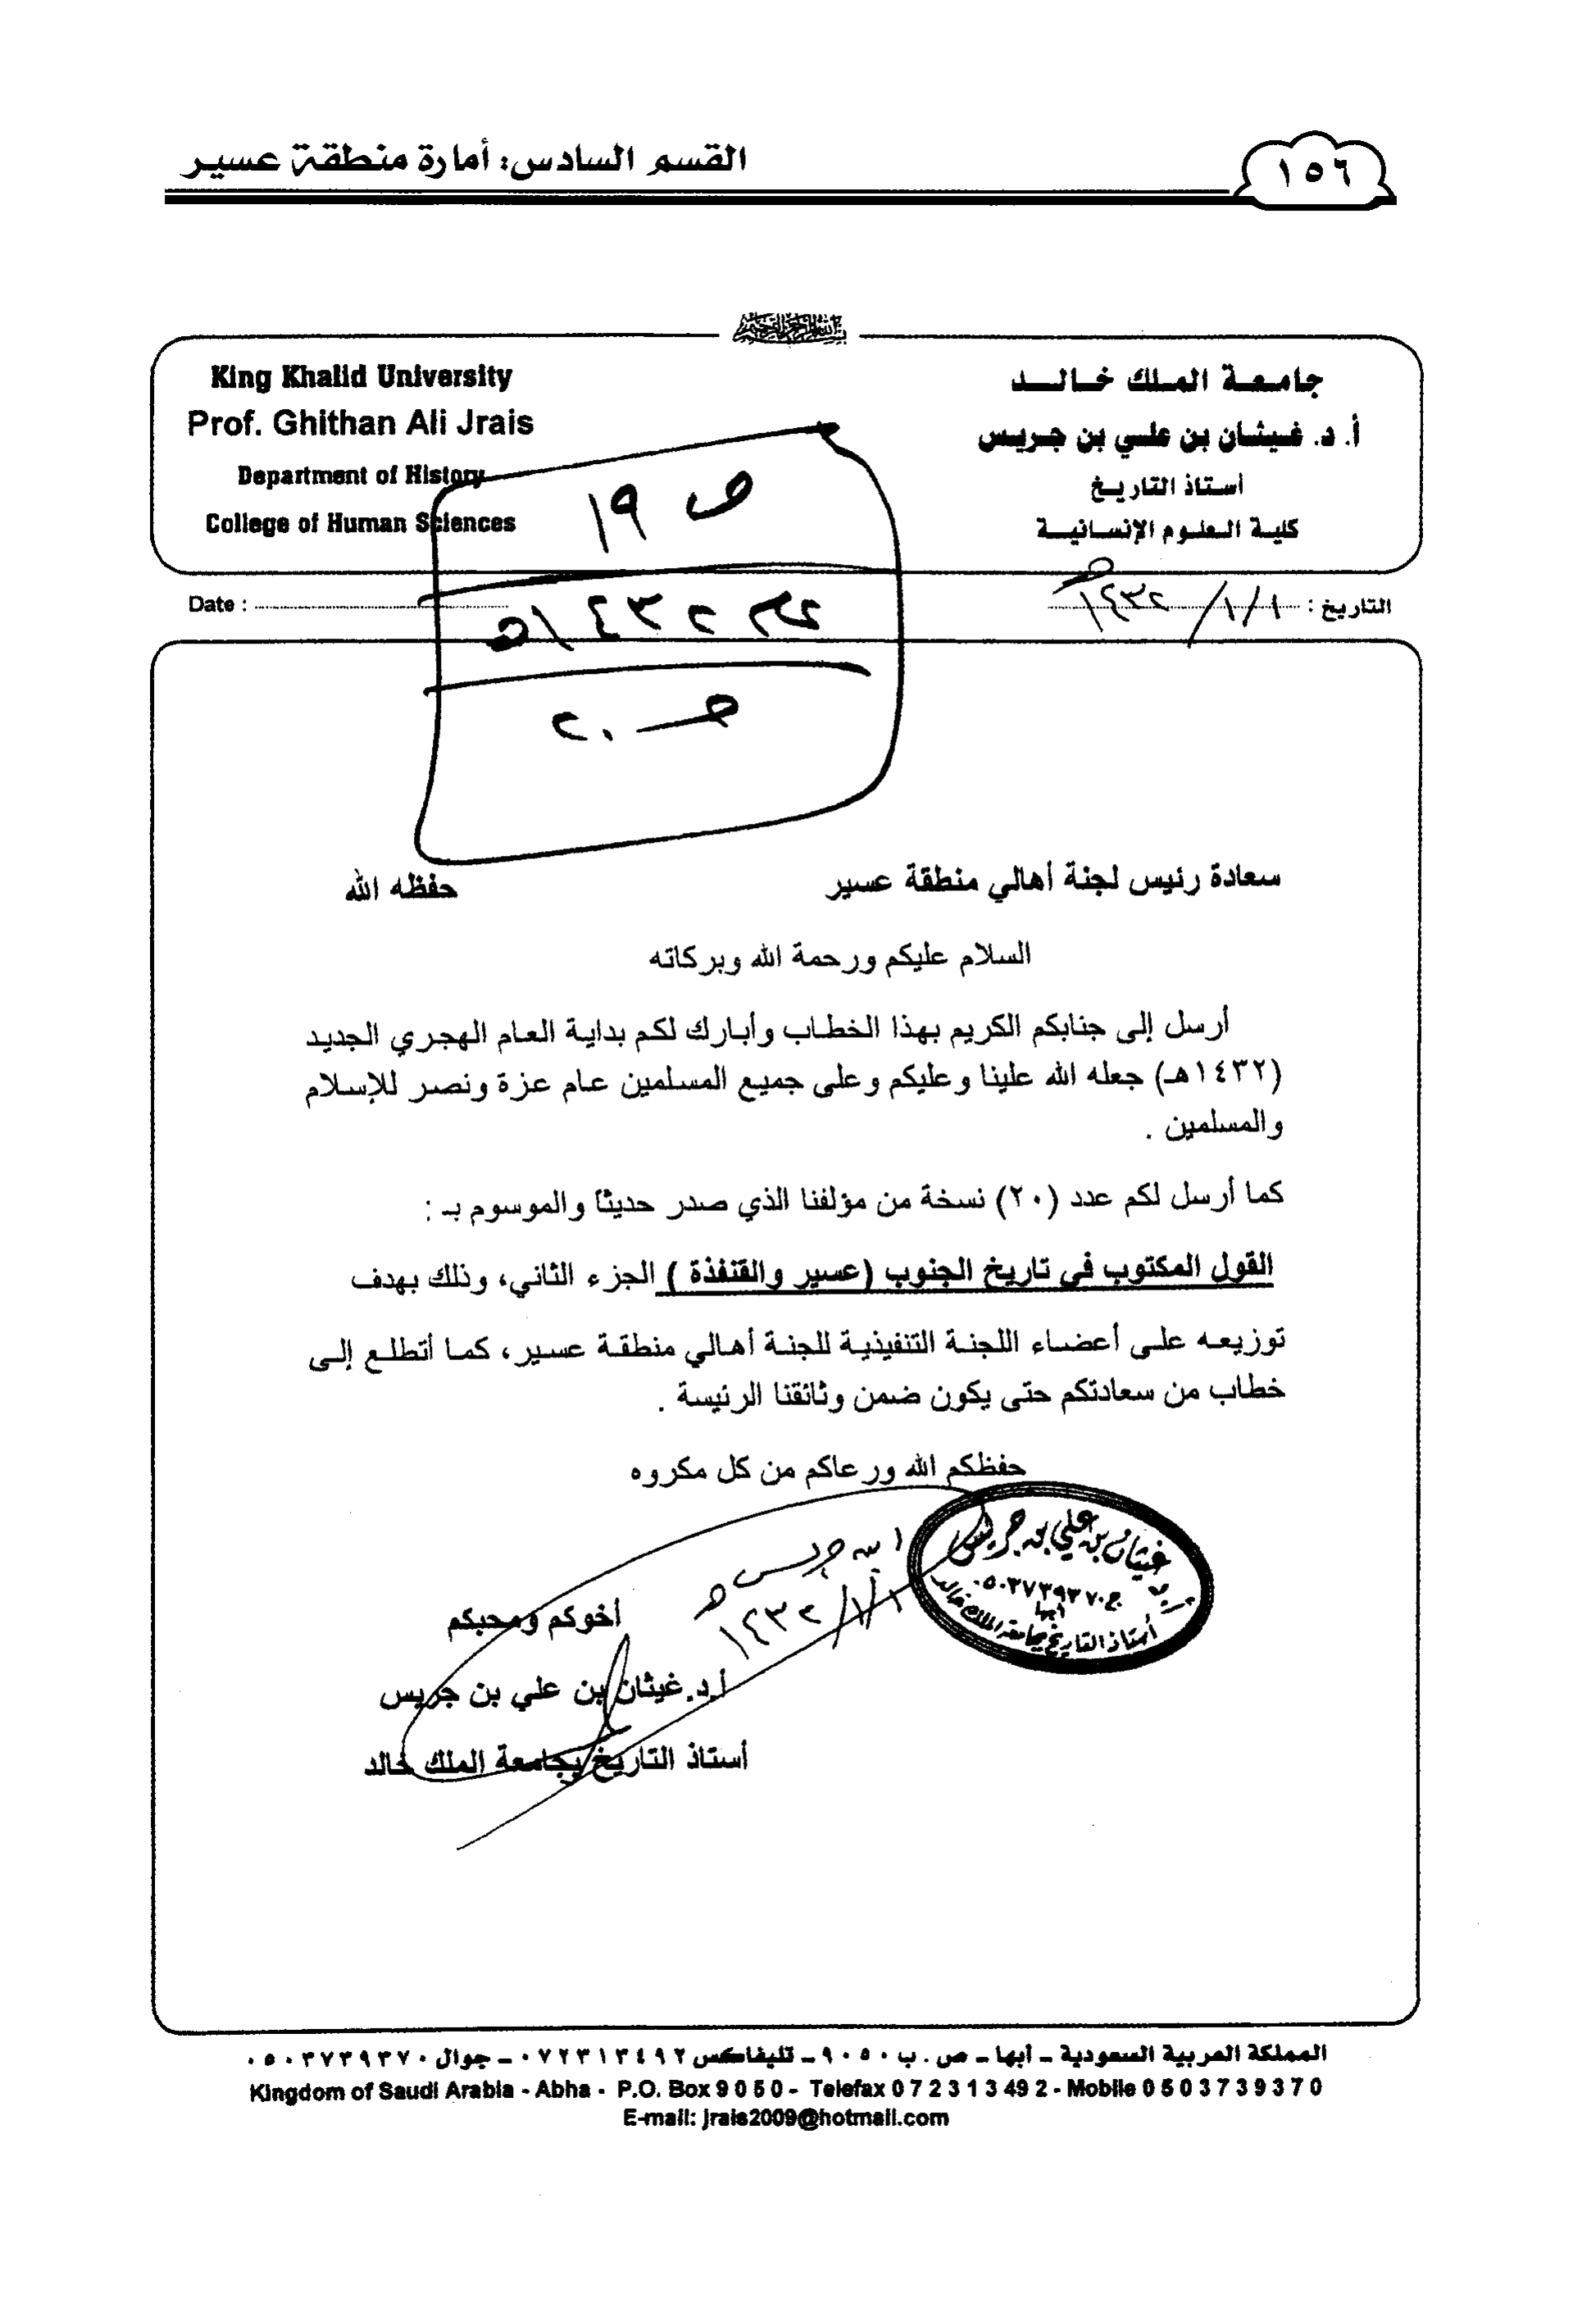 ١٥٦
القسم السادس: أمارة منطقة عسير
جامعة الملك خالد
أ. د. غيثان بن علي بن جريس
أستاذ التاريخ
كلية العلوم الإنسانية
King Khalid University
Prof. Ghithan Ali Jrais
Department of History
College of Human Sciences
ص ١٩
التاريخ : ١/١/١٤٣٢هـ
Date :
صـ ٢٠
سعادة رئيس لجنة أهالي منطقة عسير حفظه الله
السلام عليكم ورحمة الله وبركاته
أرسل إلى جنابكم الكريم بهذا الخطاب وأبارك لكم بداية العام الهجري الجديد
(١٤٣٢هـ) جعله الله علينا وعليكم وعلى جميع المسلمين عام عزة ونصر للإسلام
والمسلمين .
كما أرسل لكم عدد (٢٠) نسخة من مؤلفنا الذي صدر حديثاً والموسوم بـ :
القول المكتوب في تاريخ الجنوب (عسير والقنفذة ) الجزء الثاني، وذلك بهدف
توزيعه على أعضاء اللجنة التنفيذية للجنة أهالي منطقة عسير، كما أتطلع إلى
خطاب من سعادتكم حتى يكون ضمن وثائقنا الرئيسة .
حفظكم الله ورعاكم من كل مكروه
غيثان بن علي بن جريس
ج ٠٥٠٣٧٣٩٣٧٠
أبها
أستاذ التاريخ بجامعة الملك خالد
ابن جريس
١/١/١٤٣٢هـ
أخوكم ومحبكم
أ.د.غيثان بن علي بن جريس
أستاذ التاريخ بجامعة الملك خالد
المملكة العربية السعودية – أبها – ص . ب ٩٠٥٠ – تليفاكس ٠٧٢٣١٣٤٩٢ – جوال ٠٥٠٣٧٣٩٣٧٠
Kingdom of Saudi Arabia - Abha - P.O. Box 9 0 5 0 - Telefax 0 7 2 3 1 3 49 2 - Mobile 0 5 0 3 7 3 9 3 7 0
E-mail: jrais2009@hotmail.com